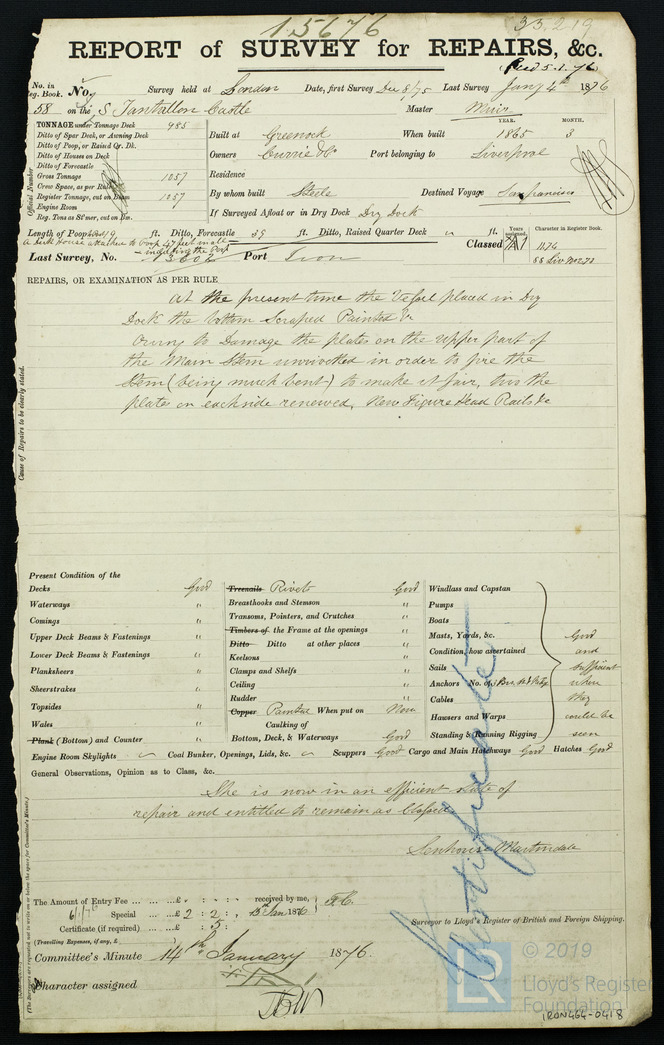 15676
33219
REPORT of SURVEY for REPAIRS, &c.
Recd 5.1.76
No. in Reg. Book. No. Survey held at London Date, first Survey Dec 8/75 Last Survey Jany 4th 1876
58 on the S Tantallon Castle Master Muir
TONNAGE under Tonnage Deck 985
Ditto of Spar Deck, or Awning Deck
Ditto of Poop, or Raised Qr. Dk.
Ditto of Houses on Deck
Ditto of Forecastle
Gross Tonnage 1057
Crew Space, as per Rule
Register Tonnage, cut on Beam 1057
Engine Room
Reg. Tons as St'mer, cut on Bm.
Official Number
YEAR. MONTH.
Built at Greenock When built 1865 3
Owners Currie & Co Port belonging to Liverpool
Residence
By whom built Steele Destined Voyage San francisco
If Surveyed Afloat or in Dry Dock Dry Dock
Length of Poop ft. Ditto, Forecastle 39 ft. Ditto, Raised Quarter Deck ft.
Classed Years assigned. A1 Character in Register Book.
11.74
Last Survey, No. Port Iron
REPAIRS, OR EXAMINATION AS PER RULE
At the present time the Vessel placed in Dry
Dock the bottom Scraped Painted &c
Owing to Damage the plates on the upper part of
the Main Stem unrivetted in order to fire the
Stem (being much bent) to make it fair, two the
plates on each side renewed, New Figure Head Rails &c
Cause of Repairs to be clearly stated.
Present Condition of the
Decks Good
Waterways "
Comings "
Upper Deck Beams & Fastenings "
Lower Deck Beams & Fastenings "
Planksheers "
Sheerstrakes "
Topsides "
Wales "
Plank (Bottom) and Counter "
Treenails Rivets Good
Breasthooks and Stemson "
Transoms, Pointers, and Crutches "
Timbers of the Frame at the openings "
Ditto Ditto at other places "
Keelsons "
Clamps and Shelfs "
Ceiling "
Rudder "
Copper Painted When put on Now
Caulking of
Bottom, Deck, & Waterways Good
Windlass and Capstan
Pumps
Boats
Masts, Yards, &c.
Condition, how ascertained
Sails
Anchors No. of
Cables
Hawsers and Warps
Standing & Running Rigging
Good
and
sufficient
when
they
could be
seen
Engine Room Skylights Coal Bunker, Openings, Lids, &c. Scuppers Good Cargo and Main Hatchways Good Hatches Good
General Observations, Opinion as to Class, &c.
She is now in an efficient state of
repair and entitled to remain as Classed
Senhouse Martindale
The Amount of Entry Fee £ : : received by me,
6/1/76 Special £ 2 : 2 : 15th Jan 1876
Certificate (if required) : 5 :
(Travelling Expenses, if any, £ )
Surveyor to Lloyd's Register of British and Foreign Shipping.
Committee's Minute 14th January 1876.
Character assigned
© 2019
LR
Lloyd's Register
Foundation
IRON464-0418